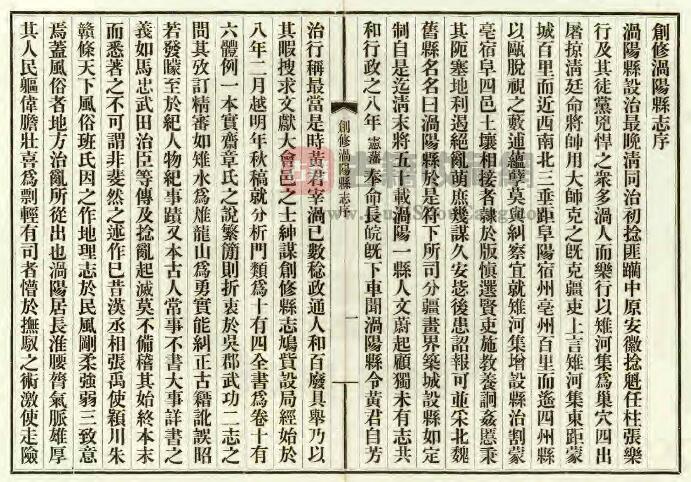 創修渦陽縣志序
渦陽縣設治最晚清同治初捻匪躪中原安徽捻魁任柱張樂
行及其徒黨兇悍之衆多渦人而樂行以雉河集爲巢穴四出
屠掠淸廷命將帥用大師克之旣克疆吏上言雉河集東距蒙
城百里而近西南北三垂距阜陽宿州亳州百里而遙四州縣
以甌脫視之藪逋蘊孽莫與糾察宜就雉河集增設縣治割蒙
亳宿阜四邑土壤相接者隷於版愼選賢吏施教養詗姦慝秉
其阨塞地利遏絕亂萌庶幾謀久安毖後患詔報可並采北魏
舊縣名名曰渦陽縣於是符下所司分疆畫界築城設縣如定
制自是迄淸末將五十載渦陽一縣人文蔚起顧獨未有志共
和行政之八年憲藩奉命長皖旣下車聞渦陽縣令黃君自芳
創修渦陽縣志序
一
治行稱最當是時黃君宰渦已數稔政通人和百廢具舉乃以
其暇搜求文獻大會邑之士紳謀創修縣志鳩貲設局經始於
八年二月越明年秋稿就分析門類爲十有四全書爲卷十有
六體例一本實齋章氏之說繁簡則折衷於吳郡武功二志之
間其攷訂精審如雉水爲濰龍山爲勇實能糾正古籍訛誤昭
若發矇至於紀人物紀事蹟又本古人常事不書大事詳書之
義如馬忠武田治臣等傳及捻亂起滅莫不備稽其始終本末
而悉著之不可謂非斐然之述作已昔漢丞相張禹使潁川朱
贛條天下風俗班氏因之作地理志於民風剛柔強弱三致意
焉蓋風俗者地方治亂所從出也渦陽居長淮腰膂氣脈雄厚
其人民軀偉膽壯喜爲剽輕有司者懵於撫馭之術激使走險